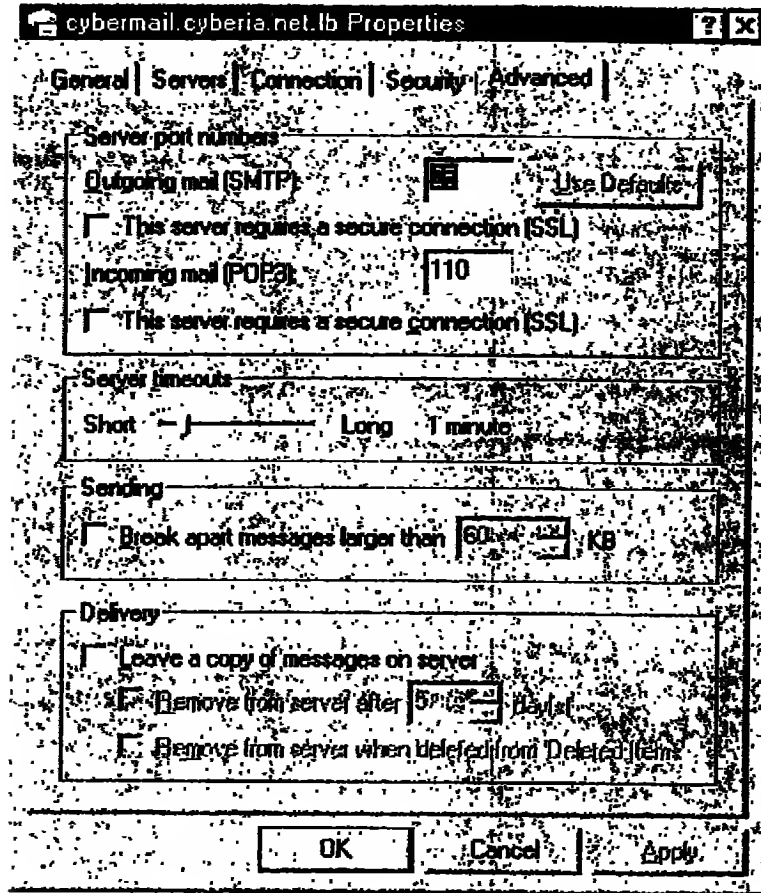 cybermail.cyberia.net.lb Properties
General Servers Connection Security Advanced
Server port numbers
Outgoing mail (SMTP): Use Defaults
This server requires a secure connection (SSL)
Incoming mail (POP3): 110
This server requires a secure connection (SSL)
Server timeouts
Short Long 1 minute
Sending
Break apart messages larger than 60 KB
Delivery
Leave a copy of messages on server
Remove from server after 5 day(s)
Remove from server when deleted from 'Deleted Items'
OK Cancel Apply